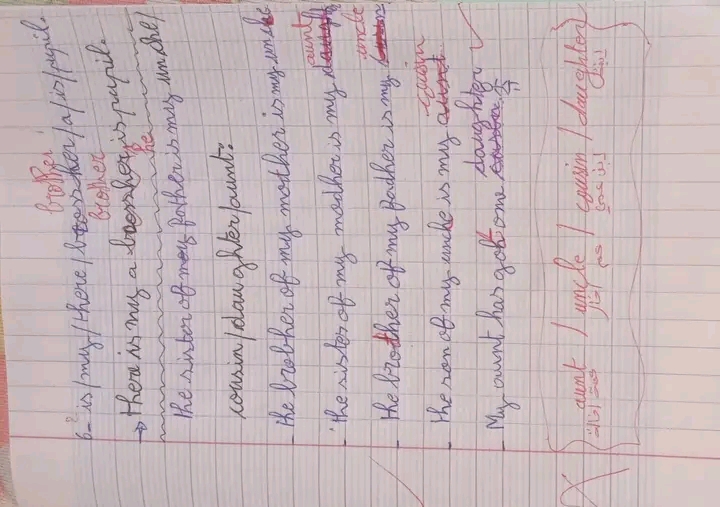 brother
6- is/my/there/brosher/a/is/pupil.
brother
→ there is my a brosher is pupil.
he
the sister of my father is my uncle/
cousin/daughter/aunt:
- the brother of my mother is my uncle
aunt
- the sister of my mother is my
uncle
- the brother of my father is my
cousin
- the son of my uncle is my aunt
daughter
- My aunt has got one
{ aunt / uncle / cousin / daughter }
عمة أو خالة عم أو خال ابن عمي